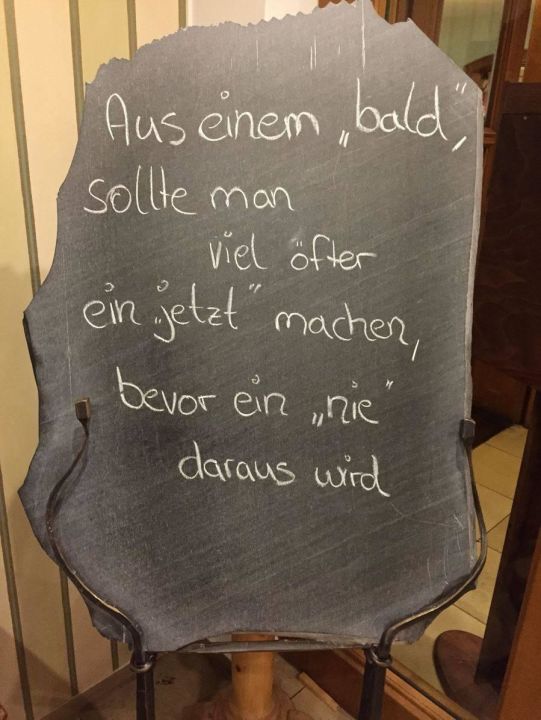 Aus einem „bald",
sollte man
viel öfter
ein „jetzt" machen,
bevor ein „nie"
daraus wird